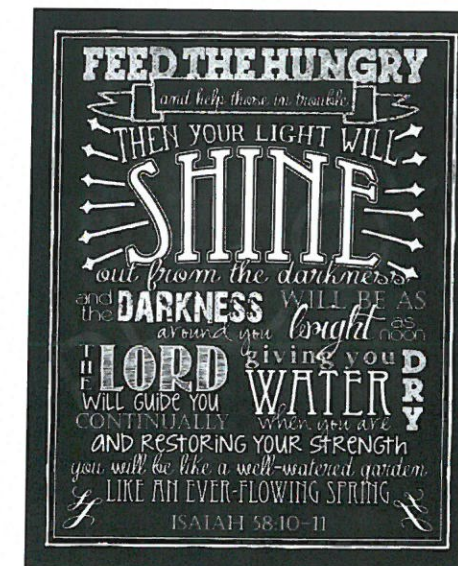 FEED THE HUNGRY
and help those in trouble
THEN YOUR LIGHT WILL
SHINE
out from the darkness
and the DARKNESS WILL BE AS
around you bright as noon
THE LORD giving you
WILL GUIDE YOU WATER DRY
CONTINUALLY when you are
AND RESTORING YOUR STRENGTH
you will be like a well-watered garden
LIKE AN EVER-FLOWING SPRING
ISAIAH 58:10-11